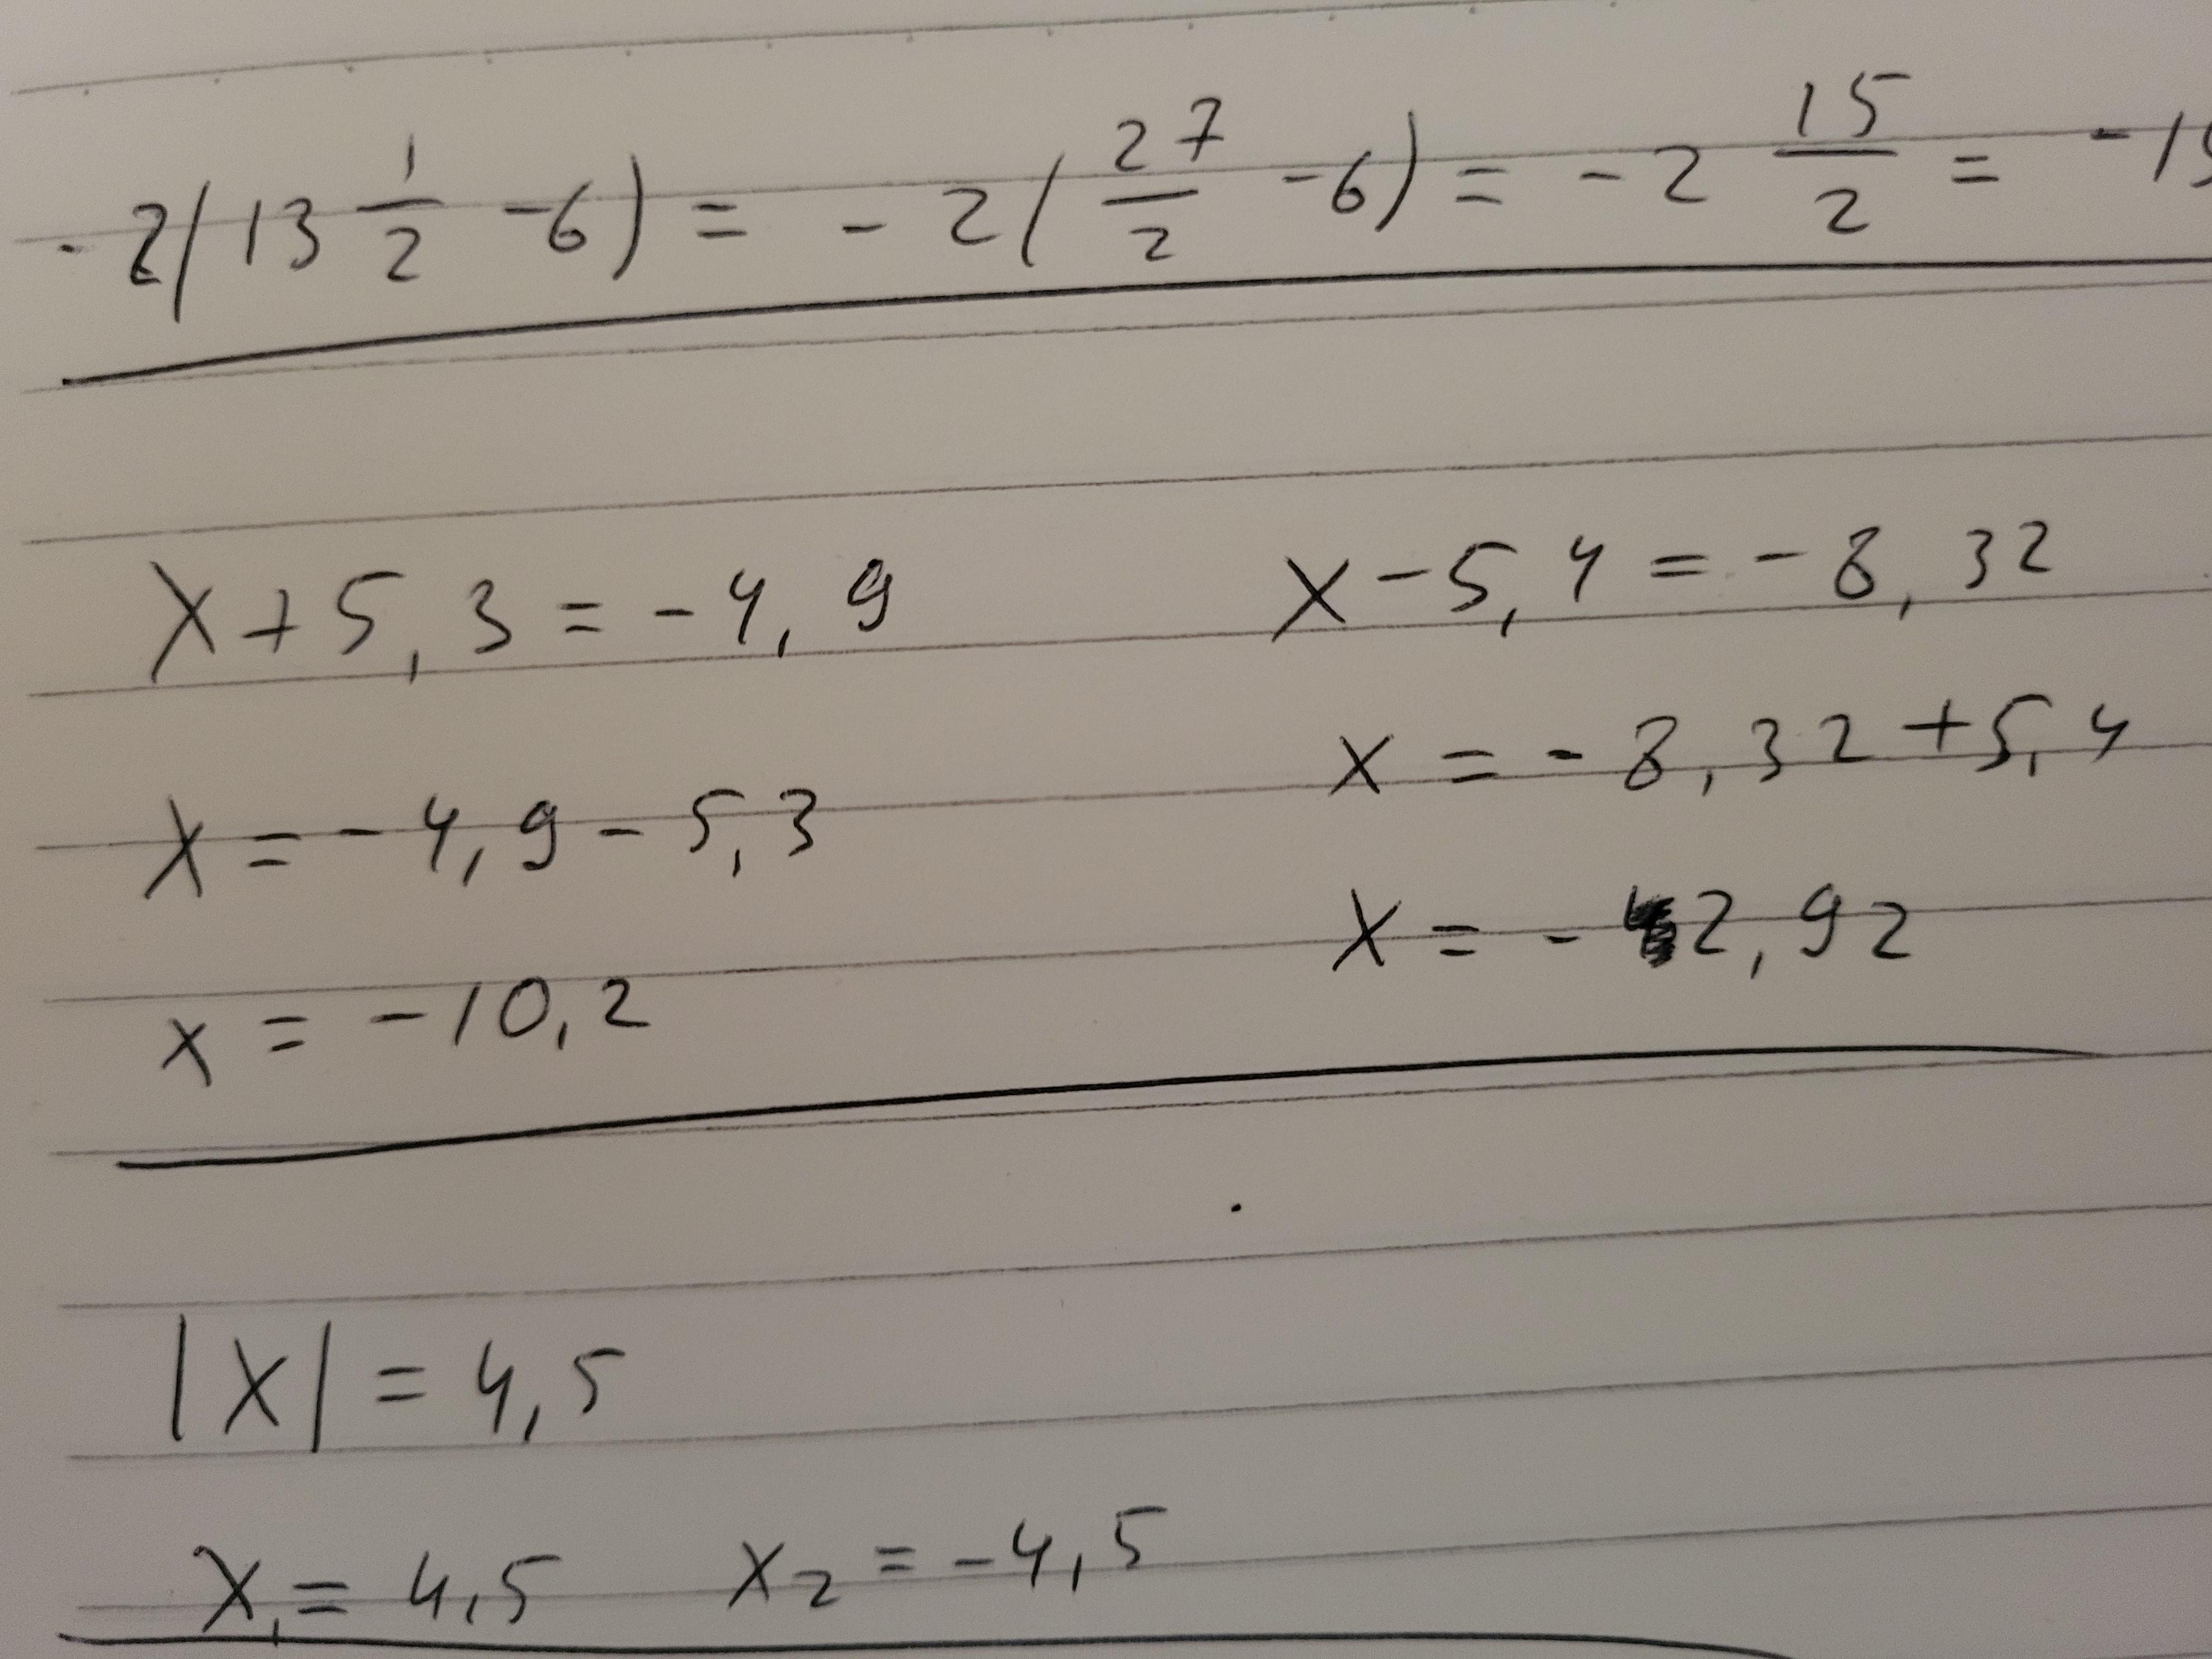 -2(13 1/2 -6) = -2(27/2 -6) = -2 15/2 = -15
x+5,3=-4,9
x=-4,9-5,3
x=-10,2
x-5,4=-8,32
x=-8,32+5,4
x=-2,92
|x|=4,5
x₁=4,5 x₂=-4,5